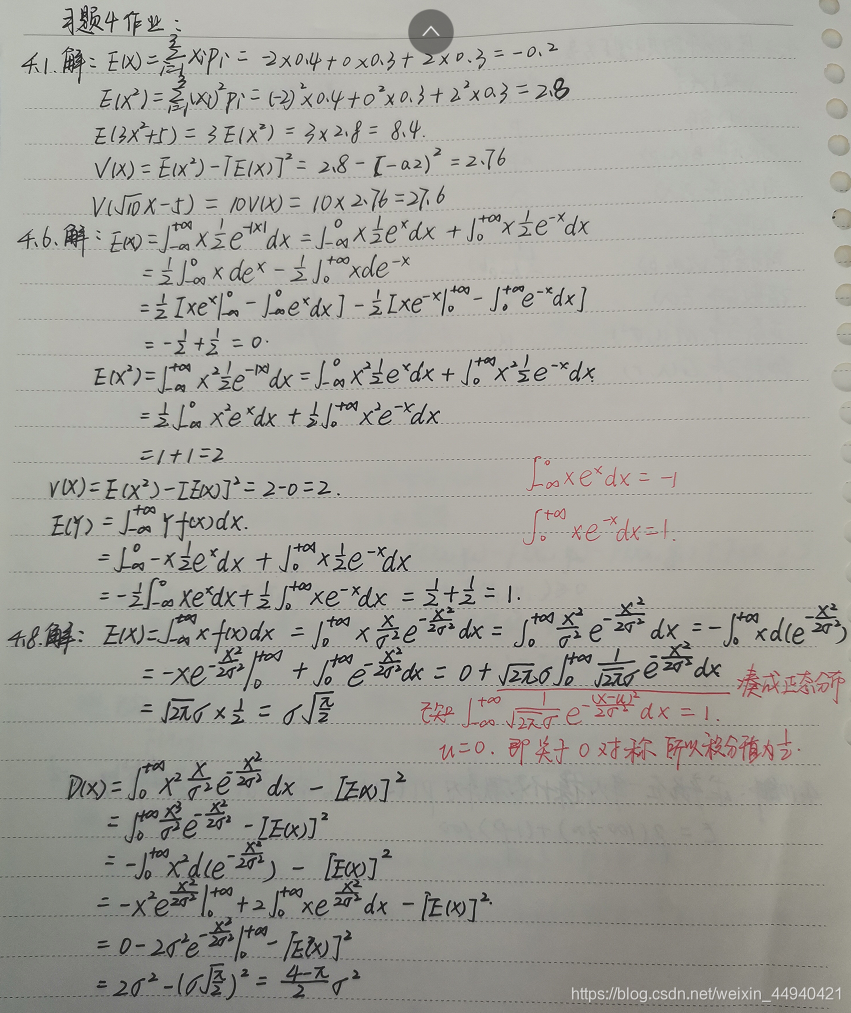 习题4作业:
4.1.解: E(X)=∑³ᵢ₌₁xᵢpᵢ = -2×0.4+0×0.3+2×0.3=-0.2
E(X²)=∑³ᵢ₌₁(xᵢ)²pᵢ=(-2)²×0.4+0²×0.3+2²×0.3=2.8
E(3X²+5) = 3E(X²) = 3×2.8 = 8.4.
V(X)=E(X²)-[E(X)]²= 2.8-[-0.2)²=2.76
V(√10X-5) = 10V(X)= 10×2.76=27.6
4.6.解: E(X)=∫₋∞^+∞ x½e^-|x|dx =∫₋∞^0 x½e^xdx +∫₀^+∞ x½e^-xdx
=½∫₋∞^0 xde^x - ½∫₀^+∞ xde^-x
=½[xe^x|₋∞^0 - ∫₋∞^0 e^xdx] -½[xe^-x|₀^+∞ - ∫₀^+∞ e^-xdx]
= -½+½ = 0.
E(X²)=∫₋∞^+∞ x²½e^-|x|dx =∫₋∞^0 x²½e^xdx +∫₀^+∞ x²½e^-xdx
=½∫₋∞^0 x²e^xdx +½∫₀^+∞ x²e^-xdx
=1+1=2
V(X)=E(X²)-[E(X)]²=2-0=2.
∫₋∞^0 xe^xdx = -1
E(Y) =∫₋∞^+∞ Yf(x)dx.
∫₀^+∞ xe^-xdx=1.
=∫₋∞^0 -x½e^xdx +∫₀^+∞ x½e^-xdx
=-½∫₋∞^0 xe^xdx+½∫₀^+∞ xe^-xdx = ½+½= 1.
4.8.解: E(X)=∫₋∞^+∞ xf(x)dx =∫₀^+∞ x x/σ² e^-x²/2σ² dx =∫₀^+∞ x²/σ² e^-x²/2σ² dx = -∫₀^+∞ xd(e^-x²/2σ²)
= -xe^-x²/2σ²|₀^+∞ +∫₀^+∞ e^-x²/2σ²dx = 0+√2πσ∫₀^+∞ 1/√2πσ e^-x²/2σ²dx 凑成正态分布
= √2πσ×½ = σ√π/2
已知∫₋∞^+∞ 1/√2πσ e^-(x-u)²/2σ² dx = 1.
u=0. 即关于0对称 所以积分值为½.
D(X)=∫₀^+∞ x² x/σ² e^-x²/2σ² dx - [E(X)]²
=∫₀^+∞ x³/σ² e^-x²/2σ² -[E(X)]²
=-∫₀^+∞ x²d(e^-x²/2σ²) - [E(X)]²
= -x²e^x²/2σ²|₀^+∞ +2∫₀^+∞ xe^x²/2σ²dx -[E(X)]².
= 0-2σ²e^-x²/2σ²|₀^+∞ -[E(X)]²
= 2σ²-(σ√π/2)² = 4-π/2 σ²
https://blog.csdn.net/weixin_44940421